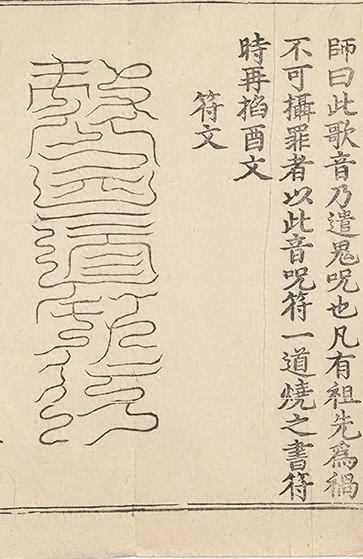 師曰此歌音乃遣鬼呪也凡有祖先為禍
不可攝罪者以此音呪符一道燒之書符
時再掐酉文
符文